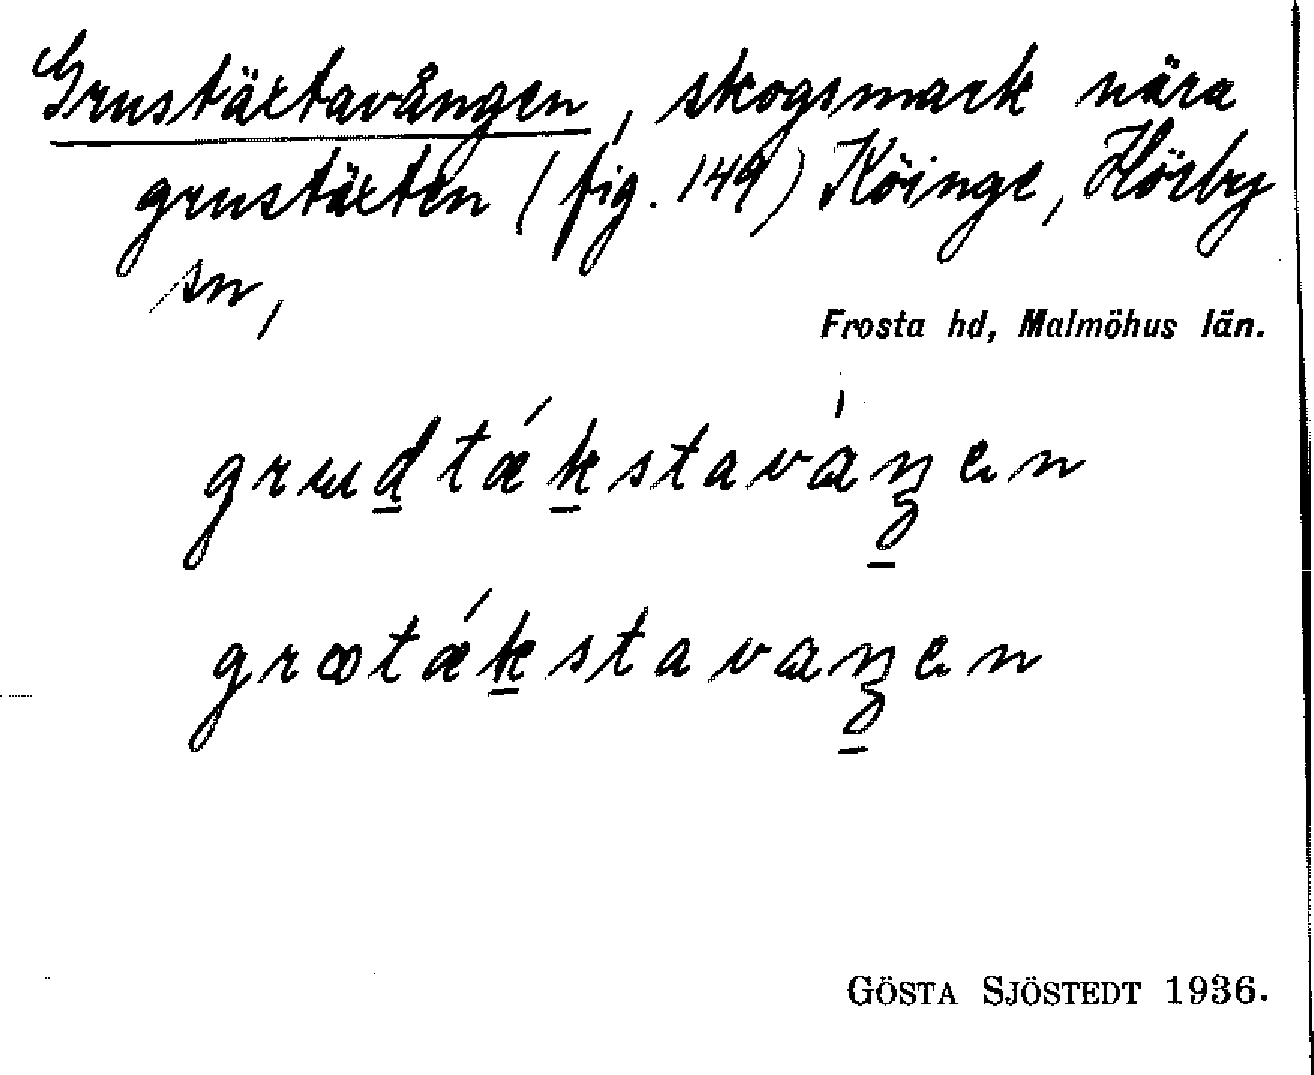 Grustäxtavången, skogsmark nära
grustäxten (fig. 149) Köinge, Hörby
sn,
Frosta hd, Malmöhus län.
grɯd̲tǽk̲stavàŋ̲en
grꝏtǽk̲stavaŋ̲en
GÖSTA SJÖSTEDT 1936.